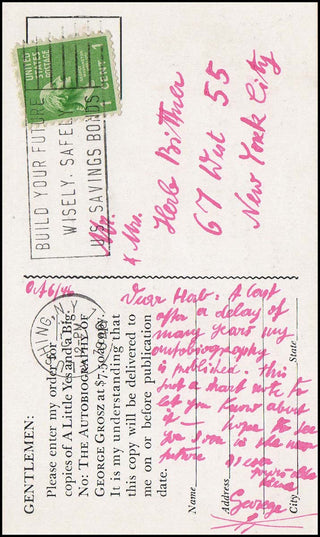 UNITED STATES POSTAGE
1 CENT 1
BUILD YOUR FUTURE
WISELY, SAFELY
U.S. SAVINGS BONDS
Mr.
& Mrs.
Herb Bittner
67 West 55
New York City
Oct 6/46
N.Y.
PM
GENTLEMEN:
Please enter my order for
copies of A Little Yes and a Big
No: THE AUTOBIOGRAPHY OF
GEORGE GROSZ at $7.50
It is my understanding that
this copy will be delivered to
me on or before publication
date.
Name
Address
City
State
Dear Herb: At last
after a delay of
many years my
autobiography
is published. this
just a short note to
let you know about
it — hope to see
you soon in the near
future
as ever
yours old
George